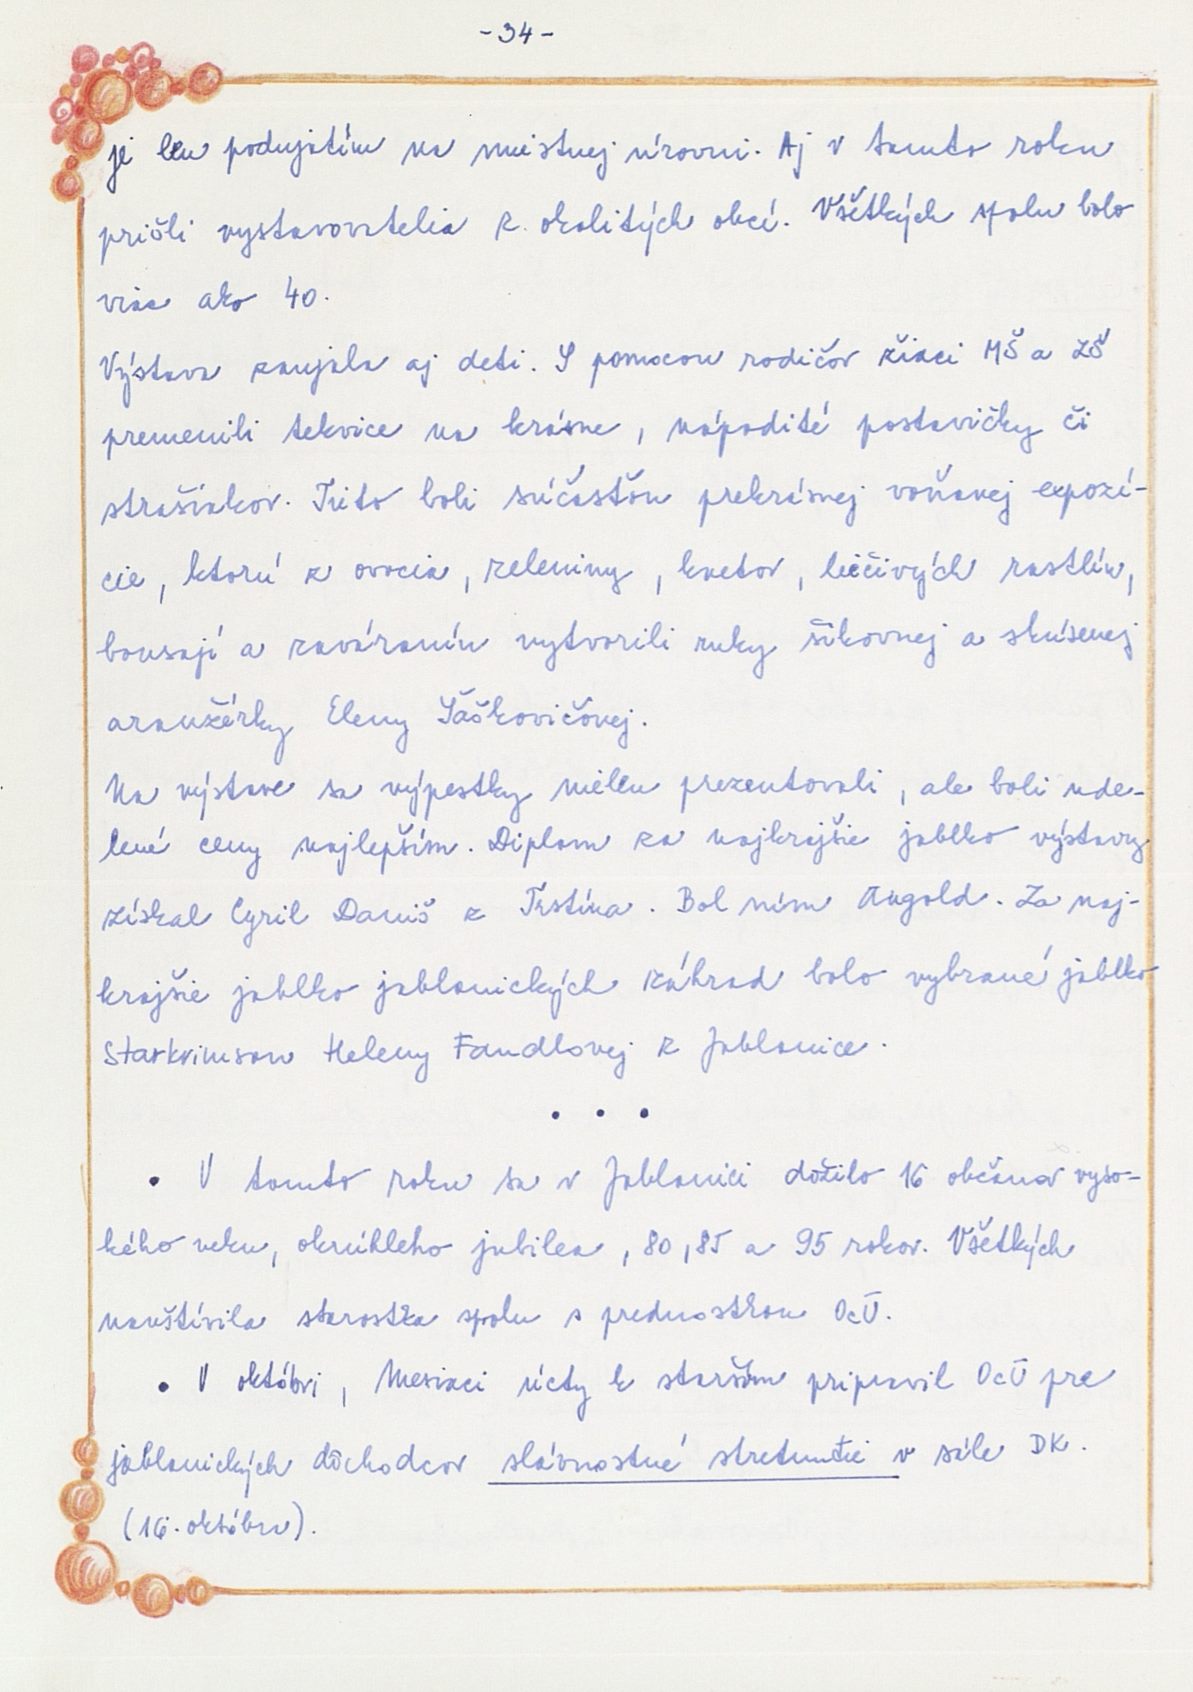 - 34 -
je len podujatím na miestnej úrovni. Aj v tomto roku
prišli vystavovatelia z okolitých obcí. Všetkých spolu bolo
viac ako 40.
Výstava zaujala aj deti. S pomocou rodičov žiaci MŠ a ZŠ
premenili tekvice na krásne, nápadité postavičky či
strašiakov. Tieto boli súčasťou prekrásnej voňavej expozí-
cie, ktorú z ovocia, zeleniny, kvetov, liečivých rastlín,
bonsají a zaváranín vytvorili ruky šikovnej a skúsenej
aranžérky Eleny Sáškovičovej.
Na výstave sa výpestky nielen prezentovali, ale boli ude-
lené ceny najlepším. Diplom za najkrajšie jablko výstavy
získal Cyril Daniš z Trstína. Bol ním Angold. Za naj-
krajšie jablko jablonických záhrad bolo vybrané jablko
Starkrimson Heleny Fandlovej z Jablonice.
• • •
• V tomto roku sa v Jablonici dožilo 16 občanov vyso-
kého veku, okrúhleho jubilea, 80, 85 a 95 rokov. Všetkých
navštívila starostka spolu s prednostkou OcÚ.
• V októbri, Mesiaci úcty k starším pripravil OcÚ pre
jablonických dôchodcov slávnostné stretnutie v sále DK.
(16. októbra).